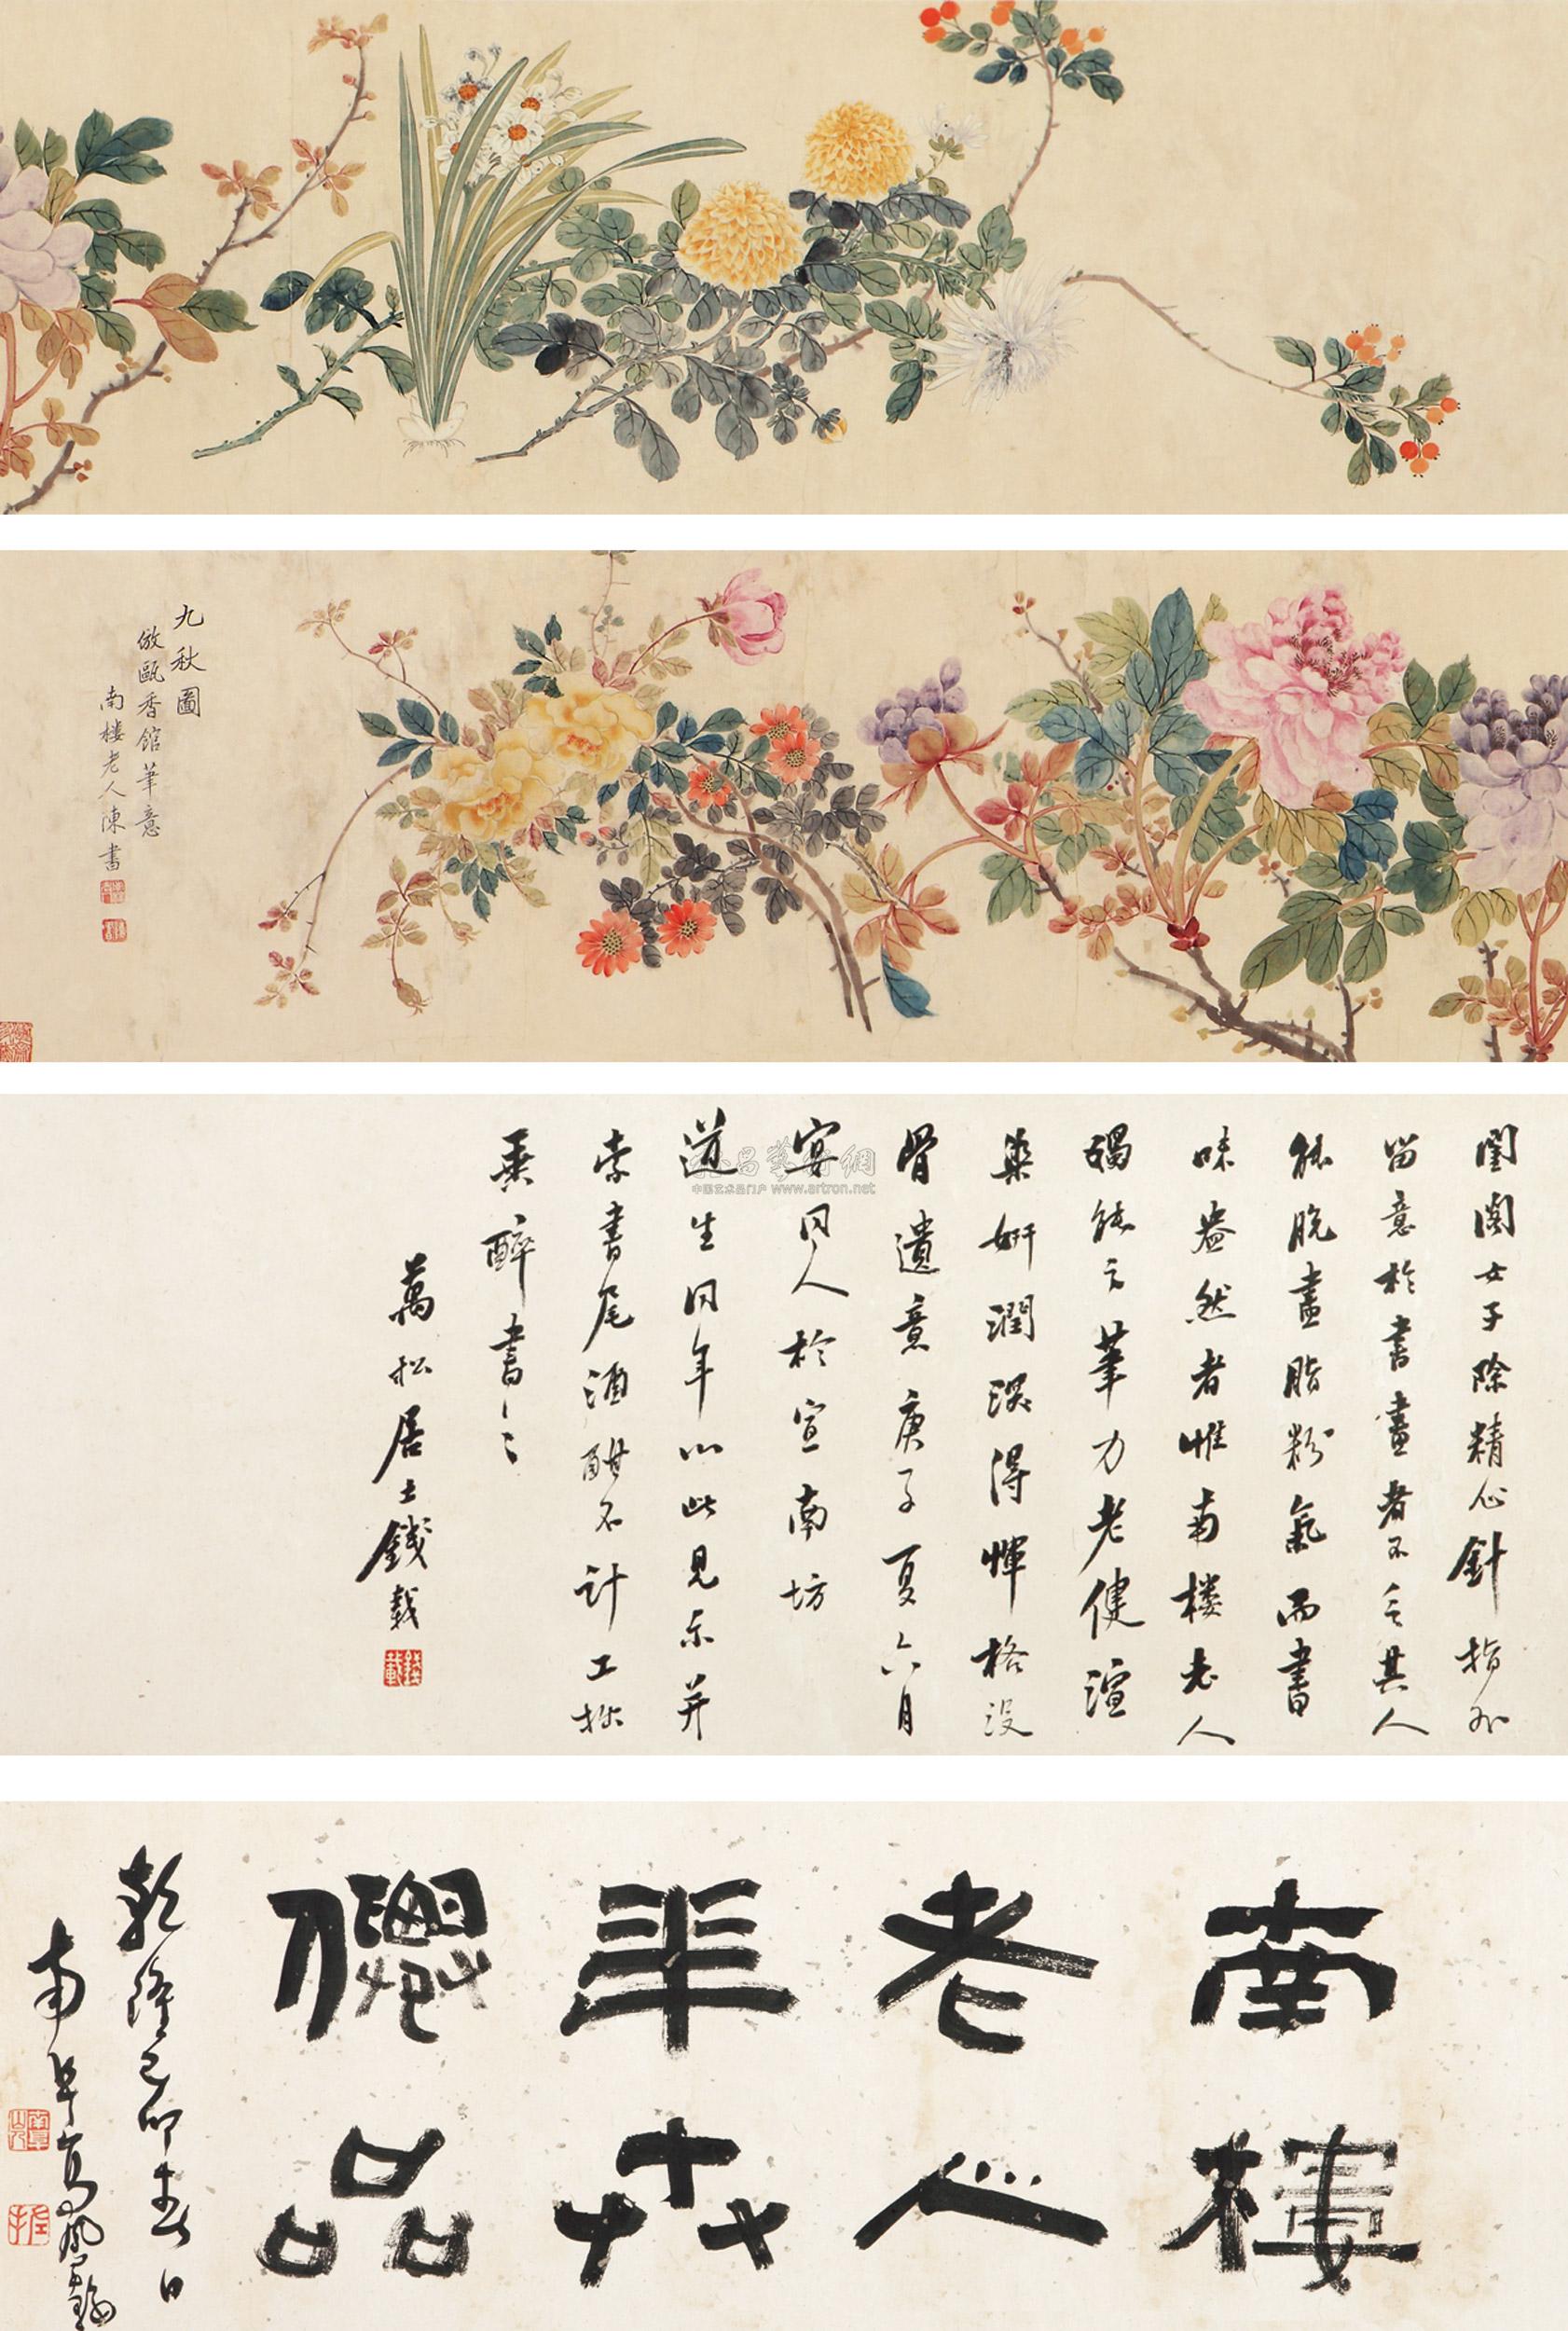 九秋圖
倣甌香館筆意
南楼老人陳書
閨閣女子除精心針指外
留意於書畫者不乏其人
能脫盡脂粉氣而書
味盎然者惟南楼老人
能之筆力老健渲
染妍潤深得惲格没
骨遺意庚子夏六月
宴同人於宣南坊
道生同年以此見示并
索書尾酒酣不計工拙
乘醉書之
萬松居士錢載
錢載
昌藝術網
中国艺术品门户 www.artron.net
南樓
老人
卉
品
乾隆己卯春日
南阜高鳳翰